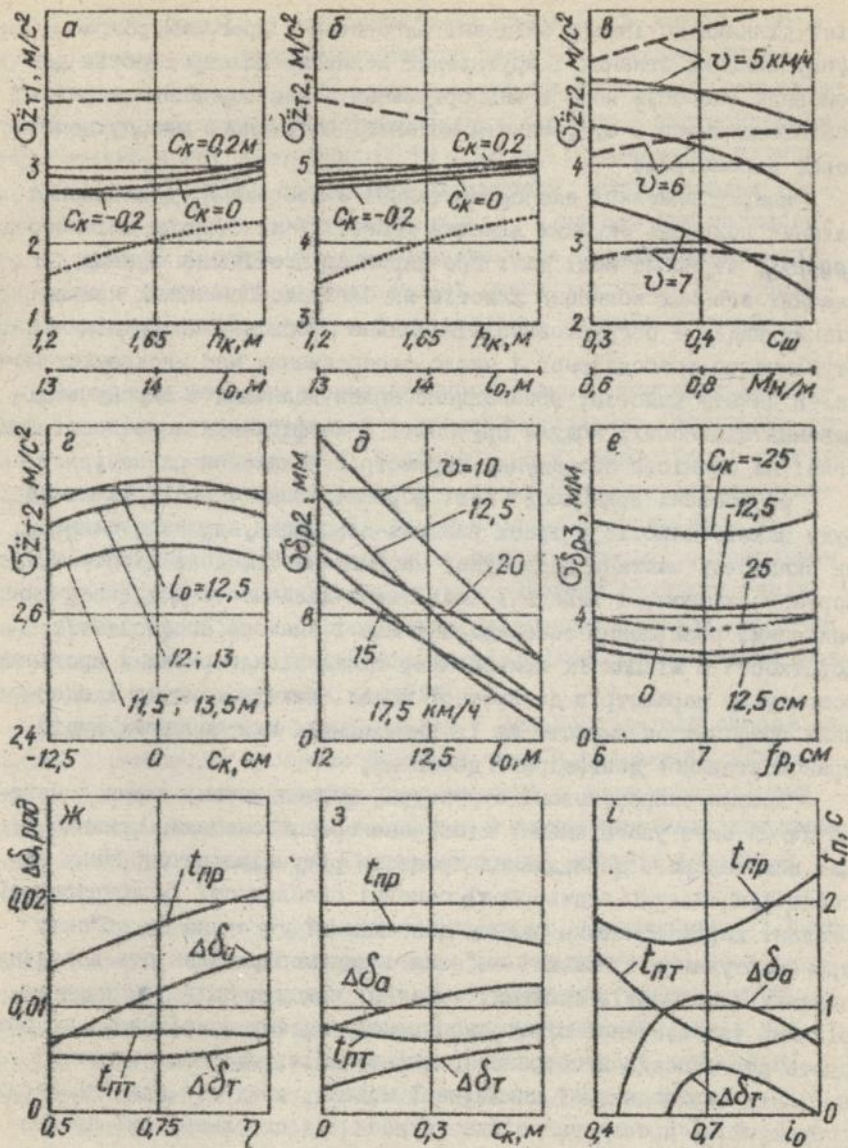 а
σz̈т1, м/с²
3
2
1
Cк=0,2м
Cк=-0,2
Cк=0
1,2
1,65
hк, м
13
14
l₀, м
б
σz̈т2, м/с²
5
4
3
Cк=0,2
Cк=-0,2
Cк=0
1,2
1,65
hк, м
13
14
l₀, м
в
σz̈т2, м/с²
5
4
3
2
υ=5 км/ч
υ=6
υ=7
0,3
0,4
Cш
0,6
0,8
Мн/м
г
σz̈т2, м/с²
2,8
2,6
2,4
l₀=12,5
12; 13
11,5; 13,5м
-12,5
0
Cк, см
д
σδр2, мм
8
0
υ=10
12,5
20
15
17,5 км/ч
12
12,5
l₀, м
е
σδр3, мм
8
4
0
Cк=-25
-12,5
25
0
12,5 см
6
7
fр, см
ж
Δδ, рад
0,02
0,01
0
tпр
Δδа
tпт
Δδт
0,5
0,75
η
з
tпр
Δδа
tпт
Δδт
0
0,3
Cк, м
і
tп, с
2
1
0
tпр
tпт
Δδа
Δδт
0,4
0,7
i₀